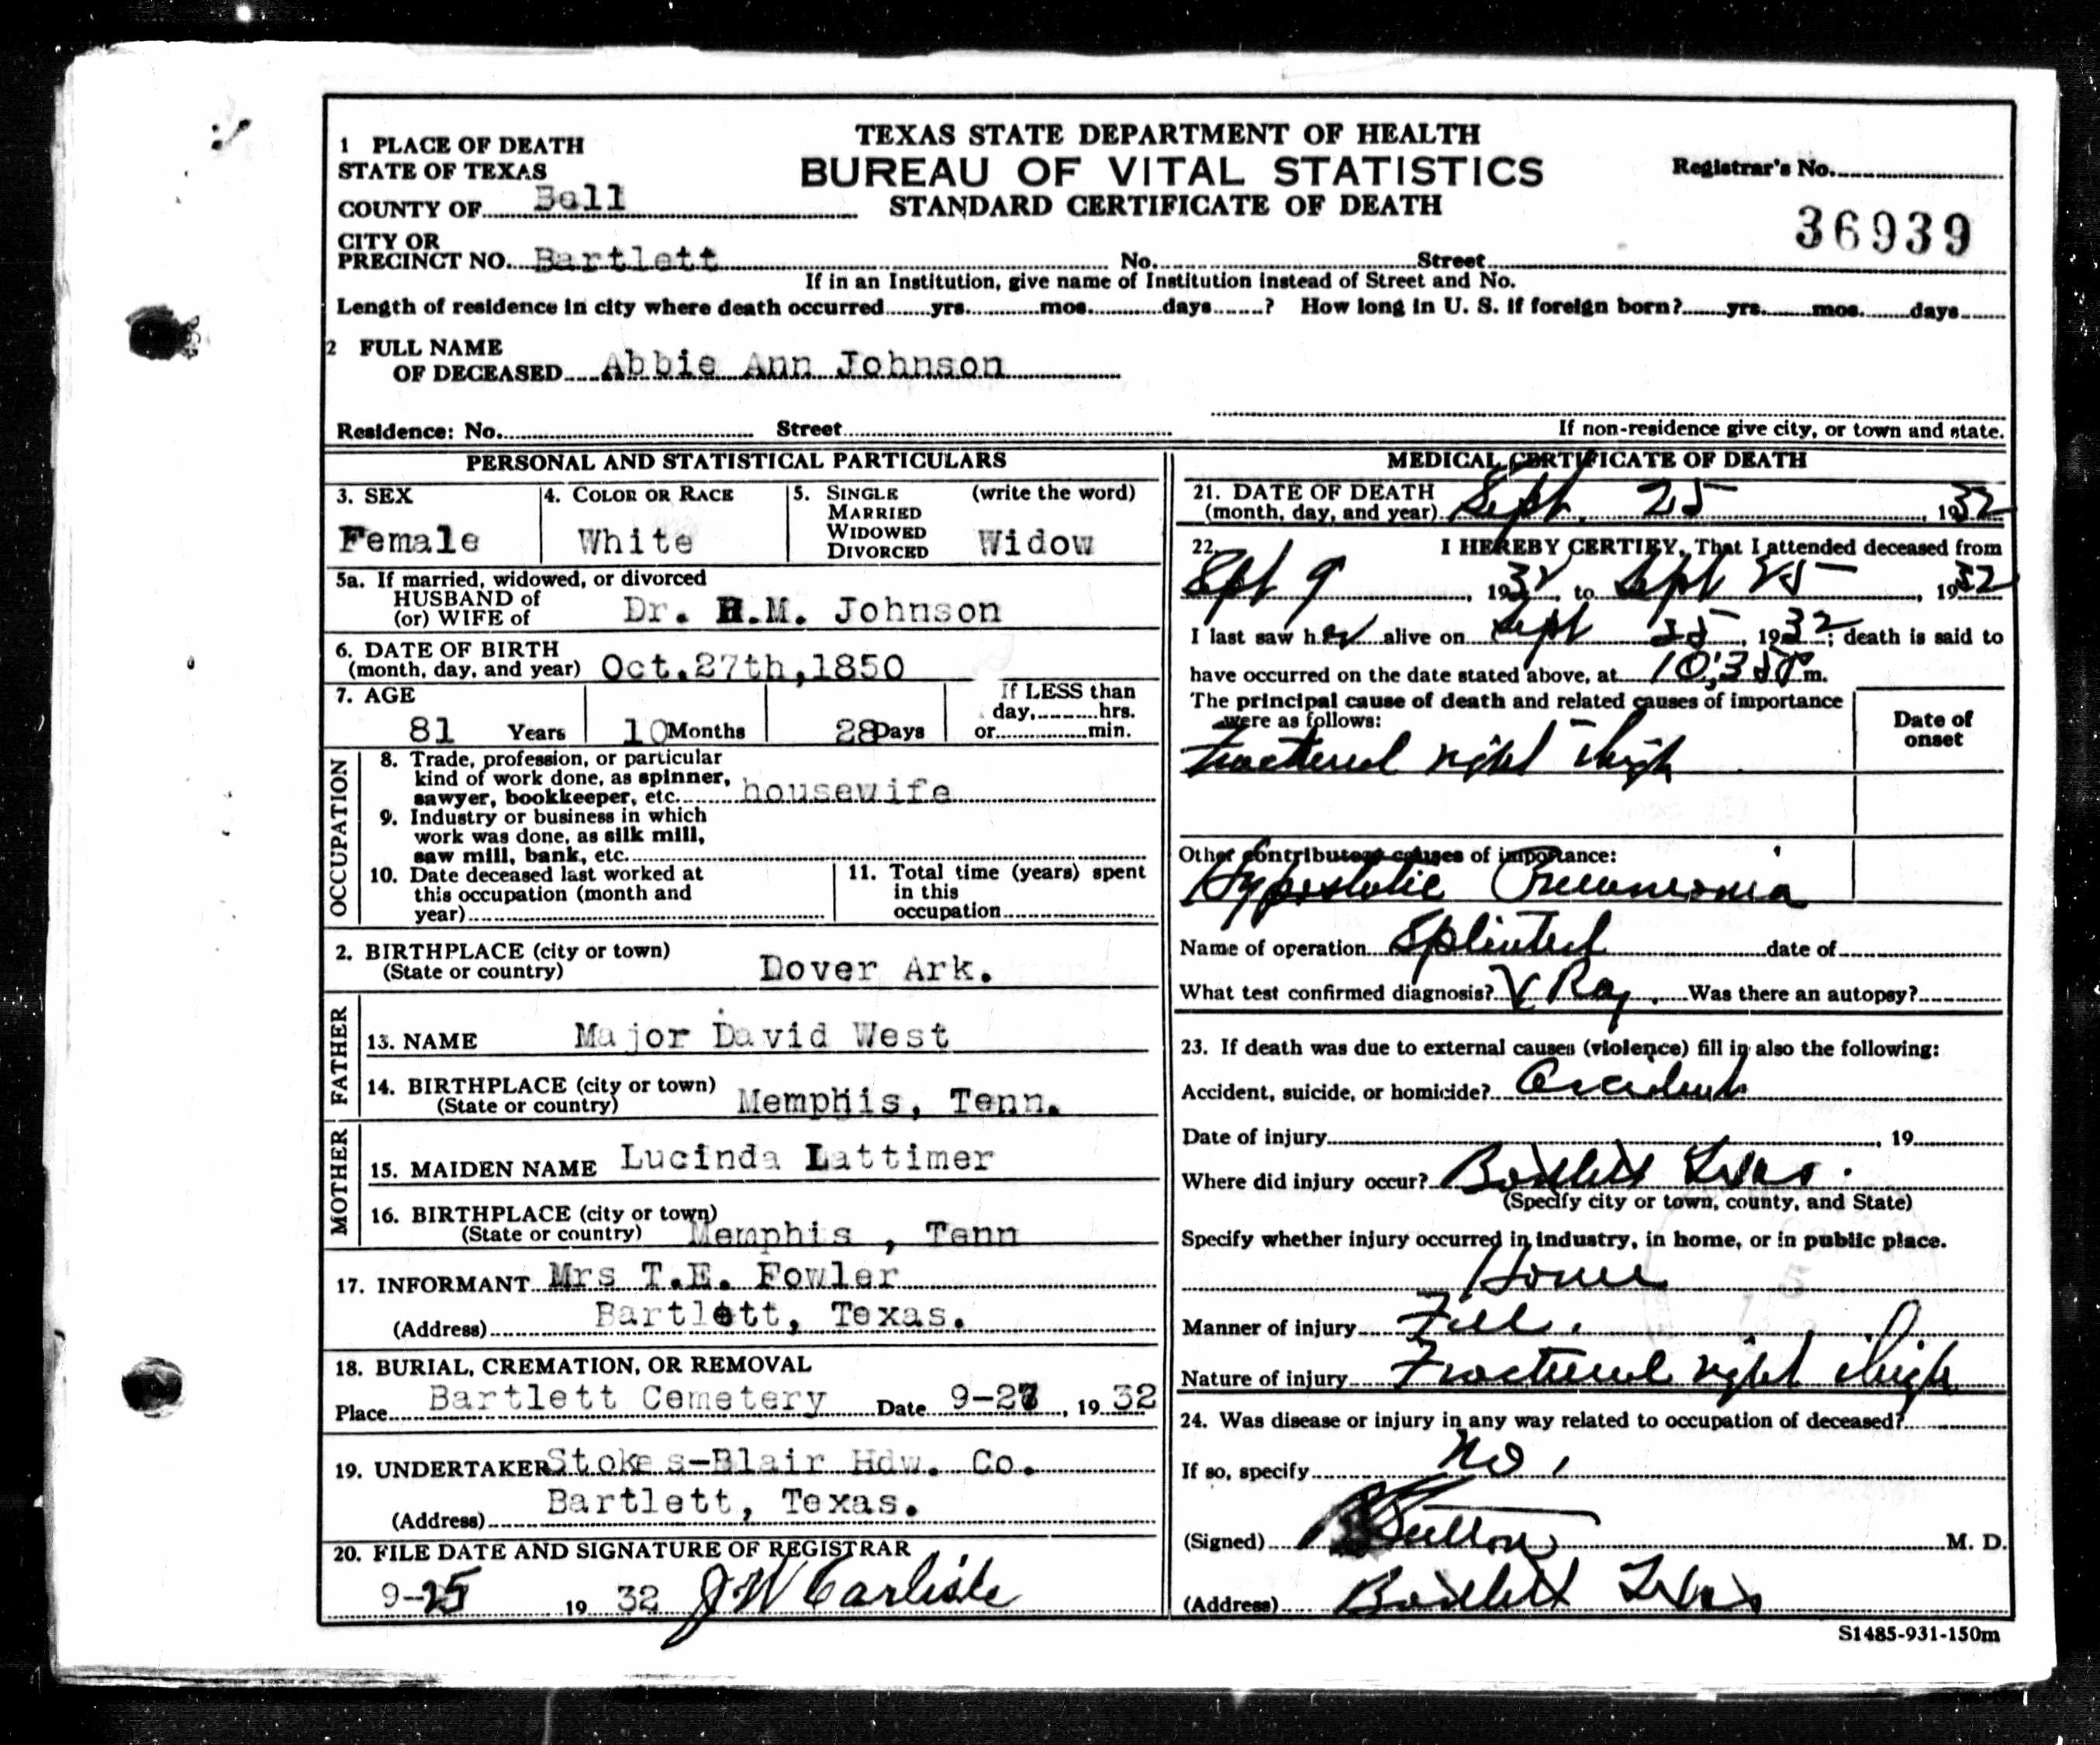 TEXAS STATE DEPARTMENT OF HEALTH
BUREAU OF VITAL STATISTICS
STANDARD CERTIFICATE OF DEATH
Registrar's No.
36939
1 PLACE OF DEATH
STATE OF TEXAS
COUNTY OF Bell
CITY OR
PRECINCT NO. Bartlett No. Street
If in an Institution, give name of Institution instead of Street and No.
Length of residence in city where death occurred yrs. mos. days ? How long in U. S. if foreign born? yrs. mos. days
2 FULL NAME
OF DECEASED Abbie Ann Johnson
Residence: No. Street
If non-residence give city, or town and state.
PERSONAL AND STATISTICAL PARTICULARS
3. SEX 4. COLOR OR RACE 5. SINGLE (write the word)
MARRIED
WIDOWED
DIVORCED
Female White Widow
5a. If married, widowed, or divorced
HUSBAND of
(or) WIFE of Dr. R.M. Johnson
6. DATE OF BIRTH
(month, day, and year) Oct.27th,1850
7. AGE If LESS than
day, hrs.
81 Years 10 Months 28 Days or min.
OCCUPATION
8. Trade, profession, or particular
kind of work done, as spinner,
sawyer, bookkeeper, etc. housewife
9. Industry or business in which
work was done, as silk mill,
saw mill, bank, etc.
10. Date deceased last worked at
this occupation (month and
year)
11. Total time (years) spent
in this
occupation
2. BIRTHPLACE (city or town)
(State or country) Dover Ark.
FATHER
13. NAME Major David West
14. BIRTHPLACE (city or town)
(State or country) Memphis, Tenn.
MOTHER
15. MAIDEN NAME Lucinda Lattimer
16. BIRTHPLACE (city or town)
(State or country) Memphis , Tenn
17. INFORMANT Mrs T.E. Fowler
(Address) Bartlett, Texas.
18. BURIAL, CREMATION, OR REMOVAL
Place Bartlett Cemetery Date 9-27, 19 32
19. UNDERTAKER Stokes-Blair Hdw. Co.
(Address) Bartlett, Texas.
20. FILE DATE AND SIGNATURE OF REGISTRAR
9-25 19 32 J W Carlisle
MEDICAL CERTIFICATE OF DEATH
21. DATE OF DEATH
(month, day, and year) Sept. 25, 1932
22. I HEREBY CERTIFY, That I attended deceased from
Sept 9, 1932, to Sept 25, 1932
I last saw her alive on Sept 25, 1932; death is said to
have occurred on the date stated above, at 10:30 P m.
The principal cause of death and related causes of importance
were as follows:
Date of
onset
Fractured right thigh
Other contributory causes of importance:
Hypostatic Pneumonia
Name of operation Splinted date of
What test confirmed diagnosis? X Ray. Was there an autopsy?
23. If death was due to external causes (violence) fill in also the following:
Accident, suicide, or homicide? Accident
Date of injury , 19
Where did injury occur? Bartlett Texas.
(Specify city or town, county, and State)
Specify whether injury occurred in industry, in home, or in public place.
Home
Manner of injury Fell.
Nature of injury Fractured right thigh
24. Was disease or injury in any way related to occupation of deceased?
If so, specify No,
(Signed) Sutton M. D.
(Address) Bartlett Texas
S1485-931-150m